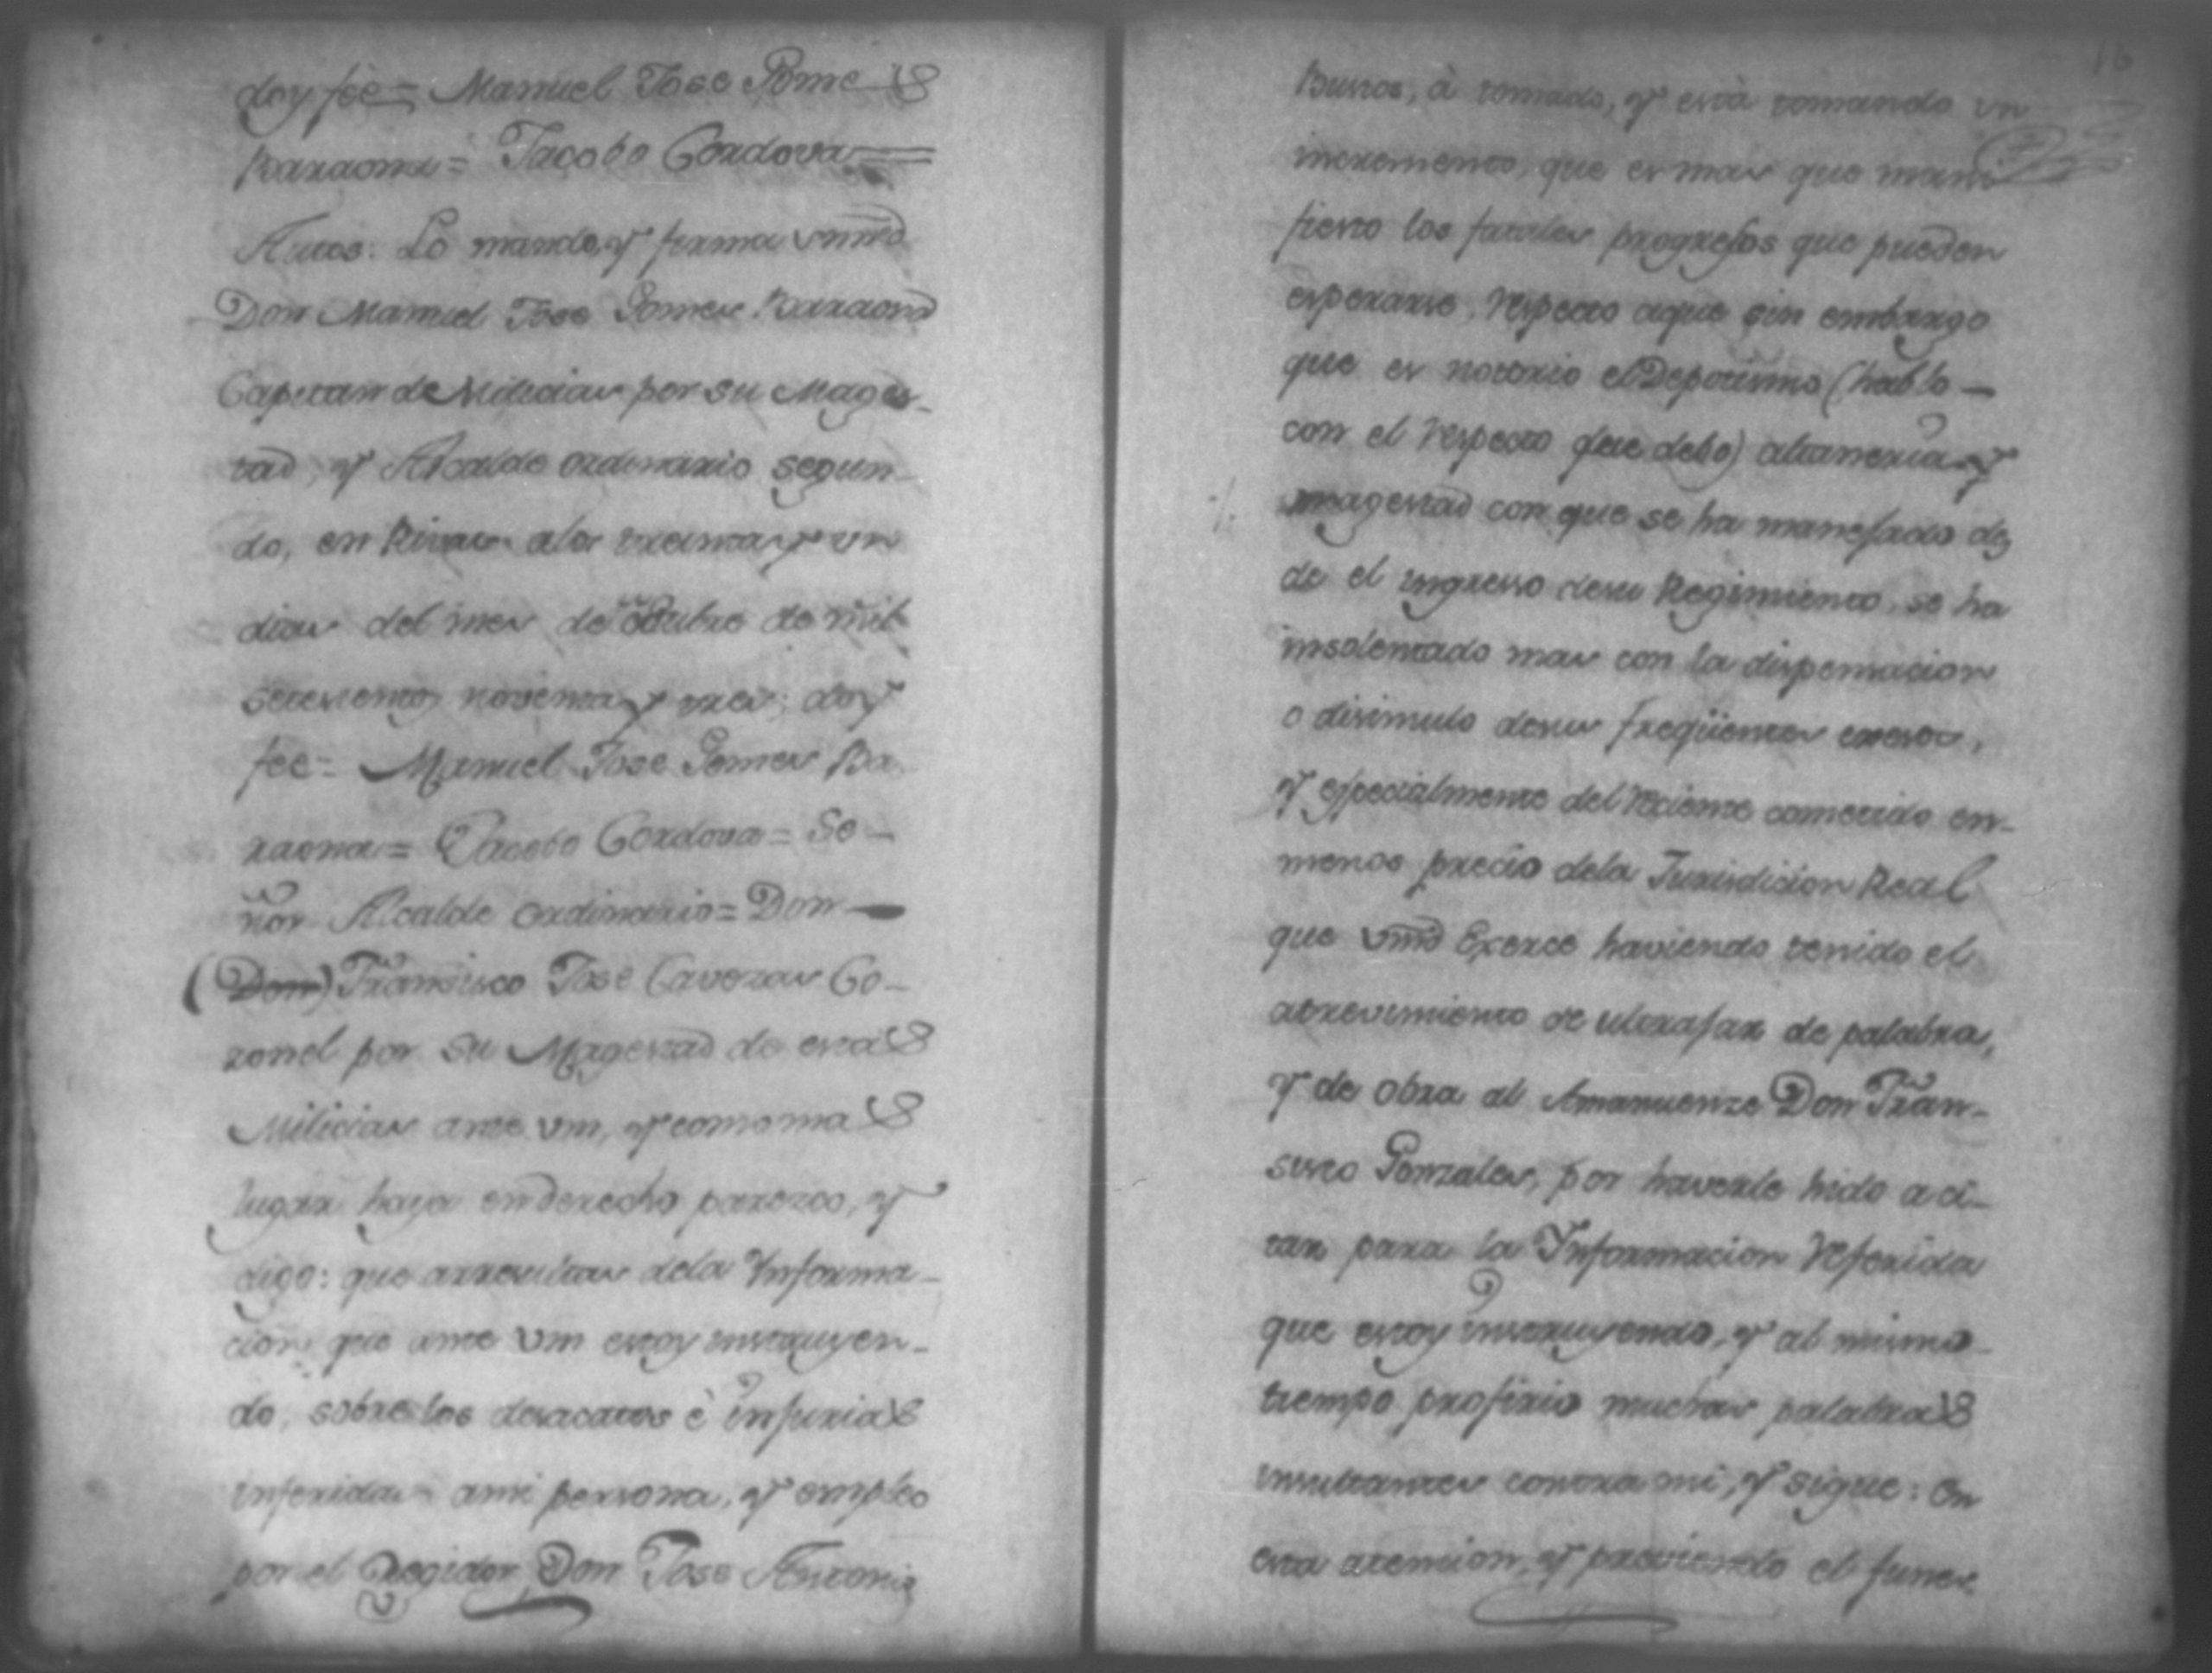 doy fee = Manuel Jose Gome
Baraona = Jacobo Cordova =
Autos: Lo mando, y firma vmd
Don Manuel Jose Gomes Baraona
Capitan de Milicias por su Mages-
tad, y Alcalde ordinario segun-
do, en Rivas a los treinta y un
dias del mes de Octubre de mil
setecientos noventa y tres; doy
fee = Manuel Jose Gomes Ba
raona = Jacobo Cordova = Se-
ñor Alcalde ordinario = Don
(Don) Fransisco Jose Cavezas Co-
ronel por su Magestad de estas
Milicias ante vm, y como mas
lugar haya en derecho paresco, y
digo: que arresultas dela Informa-
cion que ante vm estoy instruyen-
do, sobre los desacatos è injurias
inferidas ami persona, y empleo
por el Regidor Don Jose Antonio
Bustos, à tomado, y està tomando un
incremento, que es mas que mani
fiesto los fatales progresos que pueden
esperarse, Respecto aque sin embargo
que es notorio el Depotismo (hablo
con el Respecto que debo) altaneria, y
magestad con que se ha manejado des
de el ingresso desu Regimiento, se ha
insolentado mas con la dispensacion
o disimulo desus freqüentes excesos,
y especialmente del Reciente cometido en
menos precio dela Jurisdicion Real
que vmd Exerce haviendo tenido el
atrevimiento de ultrajar de palabra,
y de obra al Amanuenze Don Fran-
sisco Gonzales, por haverle hido a ci-
tar para la Informacion Referida
que estoy instruyendo, y al mismo
tiempo profirio muchas palabras
insultantes contra mi, y sigue: En
esta atencion, y previendo el funes